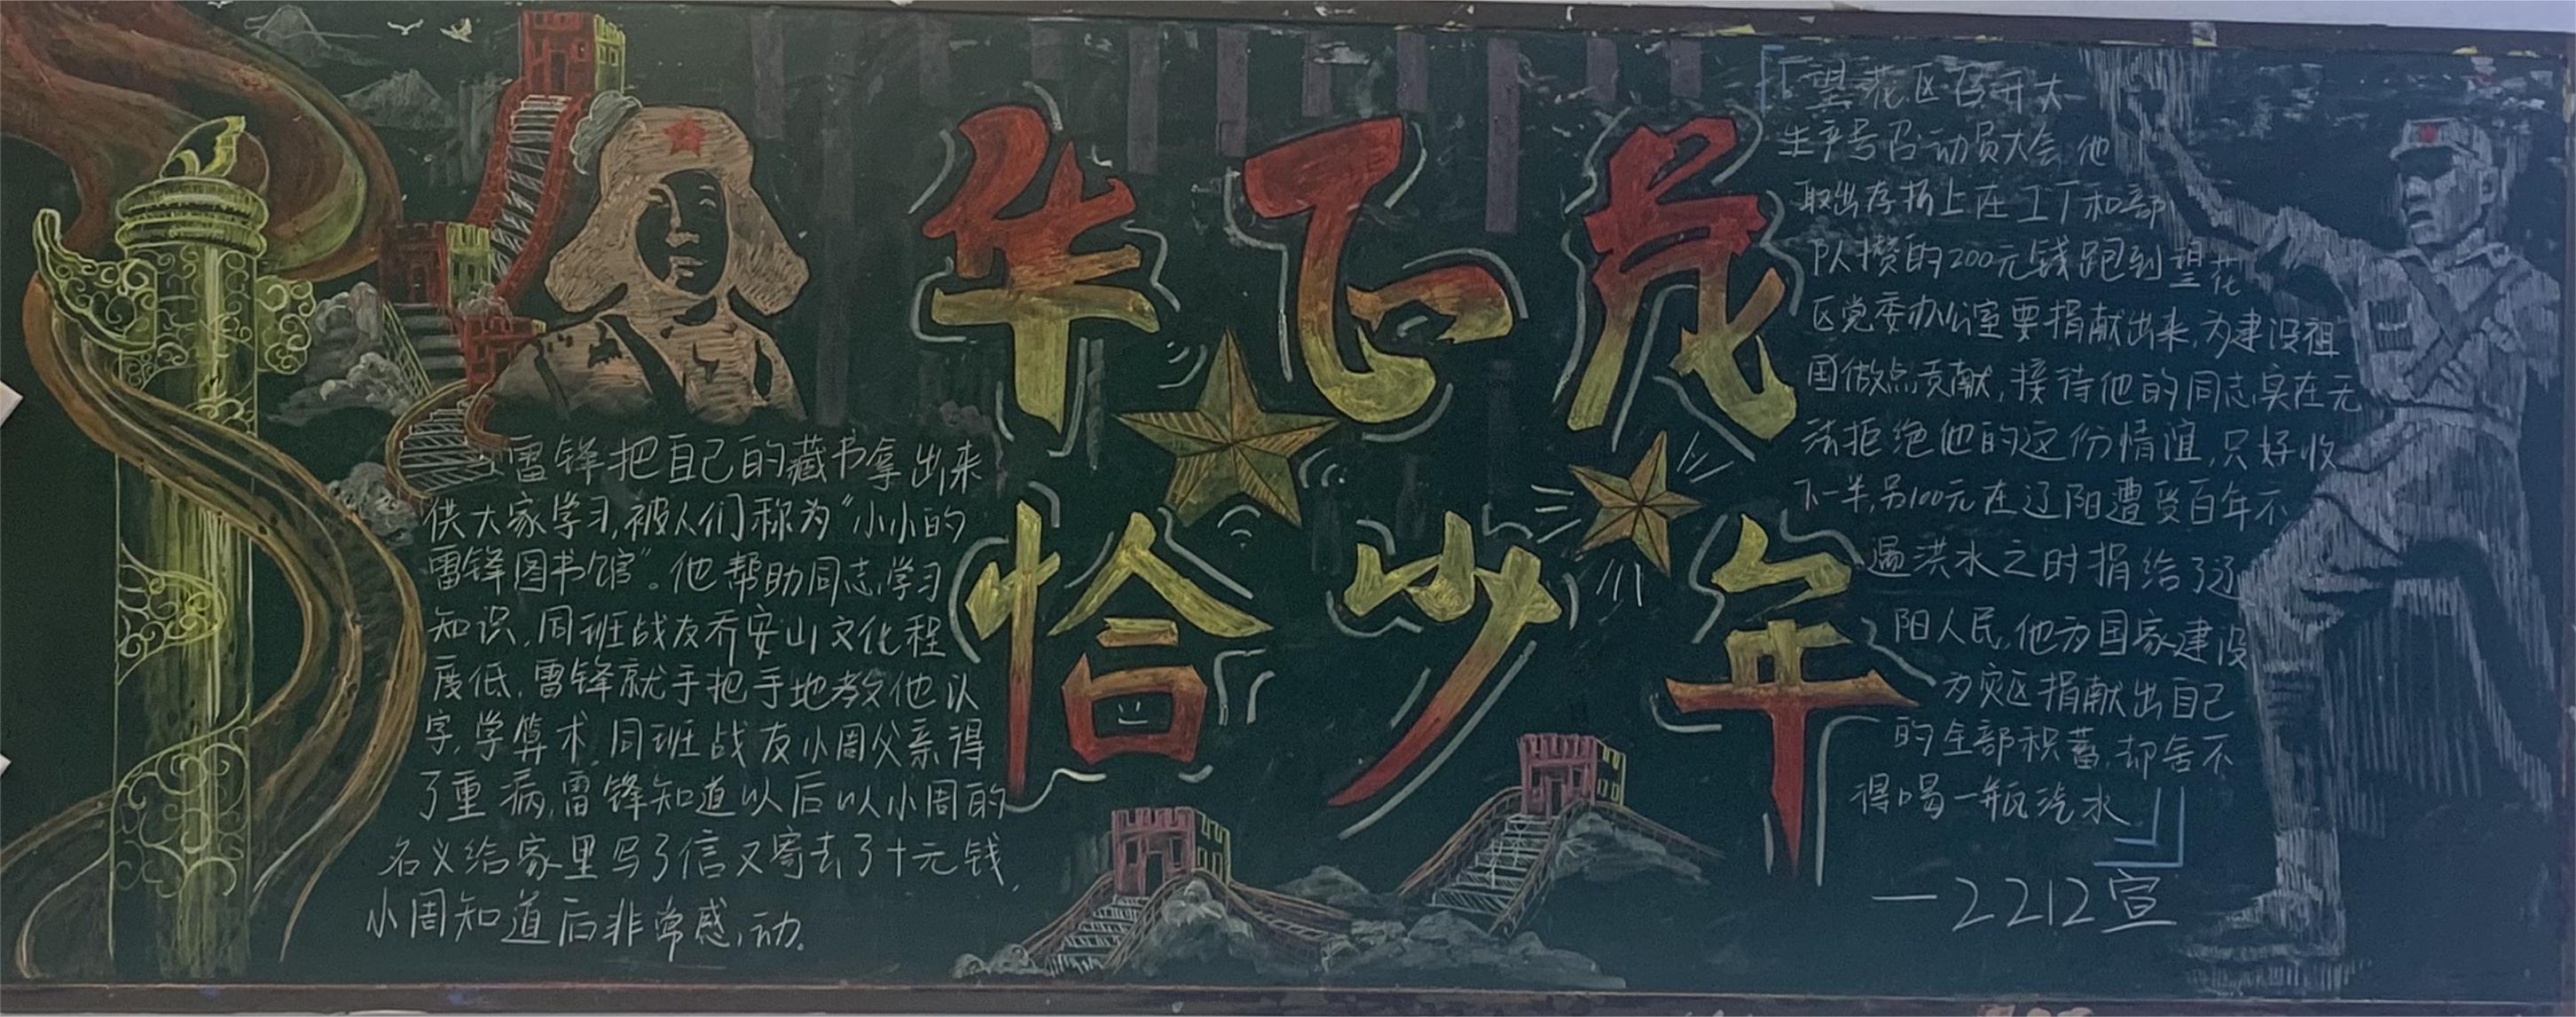 雷锋把自己的藏书拿出来
供大家学习,被人们称为“小小的
雷锋图书馆”。他帮助同志学习
知识,同班战友乔安山文化程
度低,雷锋就手把手地教他认
字,学算术,同班战友小周父亲得
了重病,雷锋知道以后以小周的
名义给家里写了信又寄去了十元钱,
小周知道后非常感动。
华飞岁
恰少年
望花区召开大
生产号召动员大会 他
取出存折上在工厂和部
队攒的200元钱跑到望花
区党委办公室要捐献出来,为建设祖
国做点贡献,接待他的同志实在无
法拒绝他的这份情谊,只好收
下一半,另100元在辽阳遭受百年不
遇洪水之时捐给了辽
阳人民,他为国家建设
为灾区捐献出自己
的全部积蓄,却舍不
得喝一瓶汽水
—2212宣